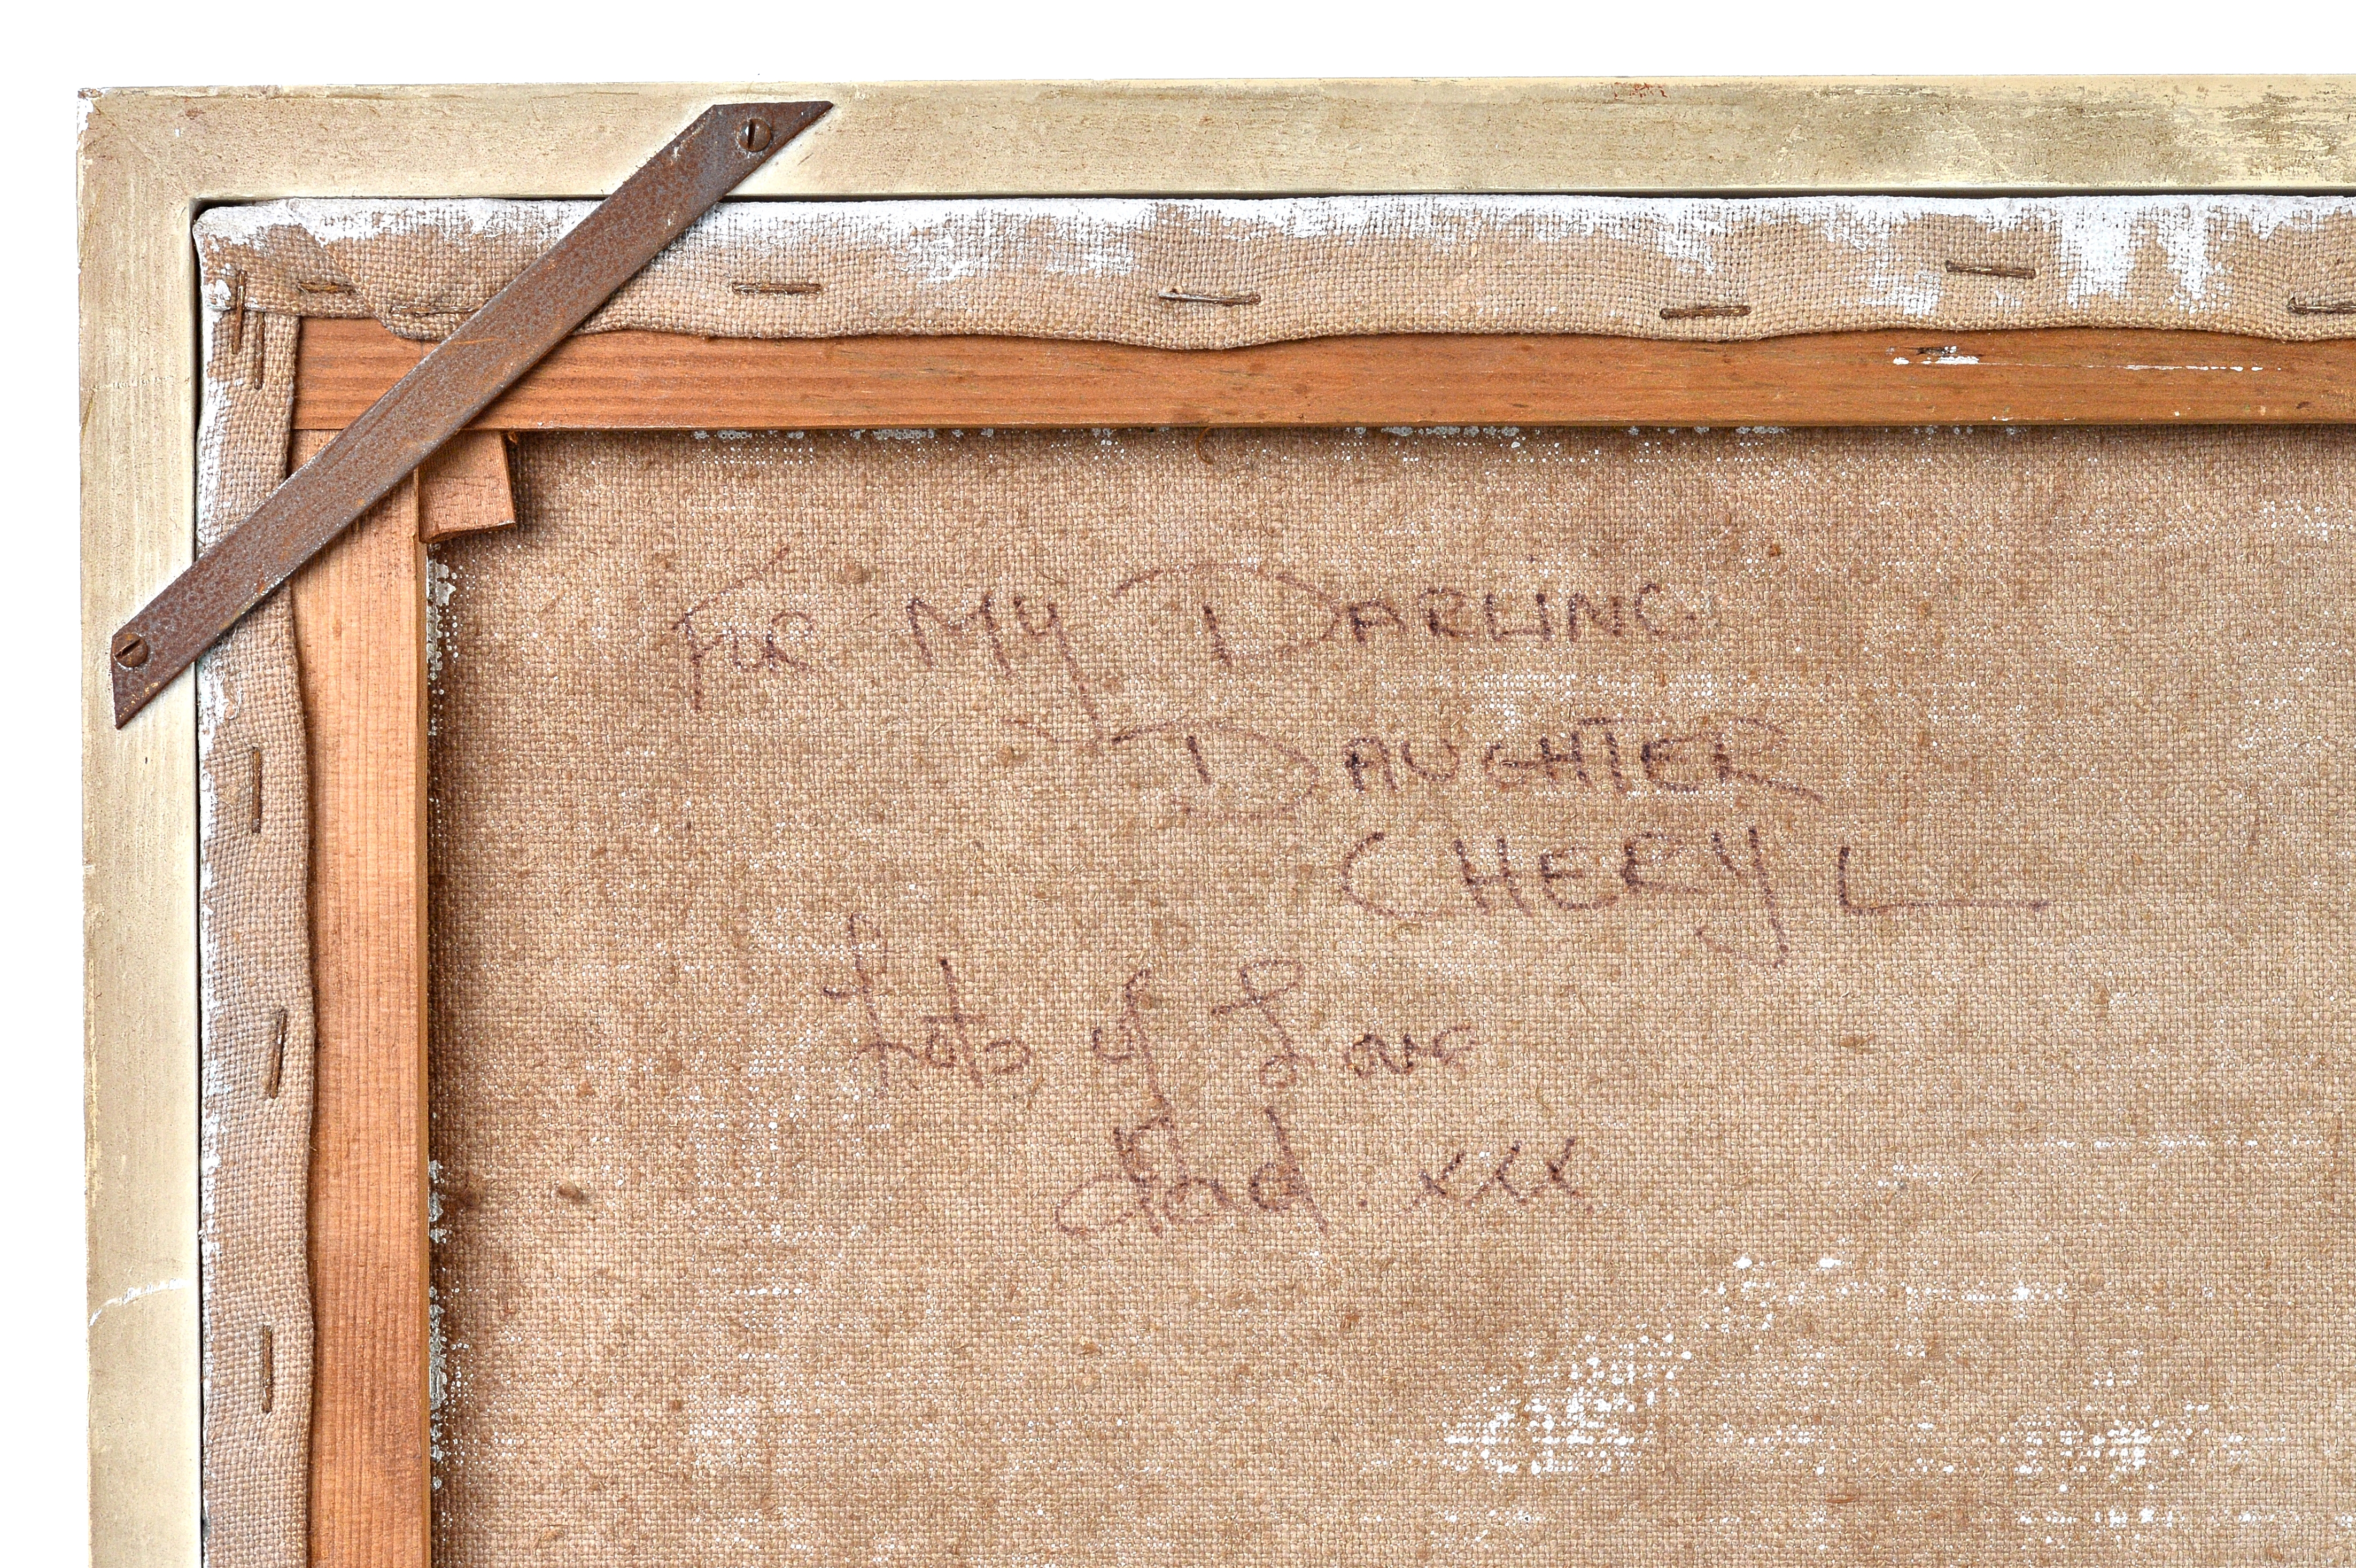 FOR MY DARLING
DAUGHTER
CHERYL
Lots of Love
Dad. xxx